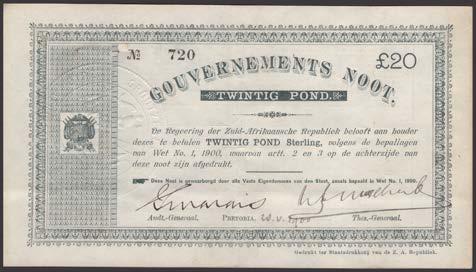 № 720
£20
GOUVERNEMENTS NOOT.
TWINTIG POND.
De Regeering der Zuid-Afrikaansche Republiek belooft aan houder
dezes te betalen TWINTIG POND Sterling, volgens de bepalingen
van Wet No. 1, 1900, waarvan artt. 2 en 3 op de achterzijde van
deze noot zijn afgedrukt.
Deze Noot is gewaarborgd door alle Vaste Eigendommen van den Staat, zooals bepaald in Wet No. 1, 1900.
Audt.-Generaal. PRETORIA, Thes.-Generaal.
Gedrukt ter Staatsdrukkerij van de Z. A. Republiek.